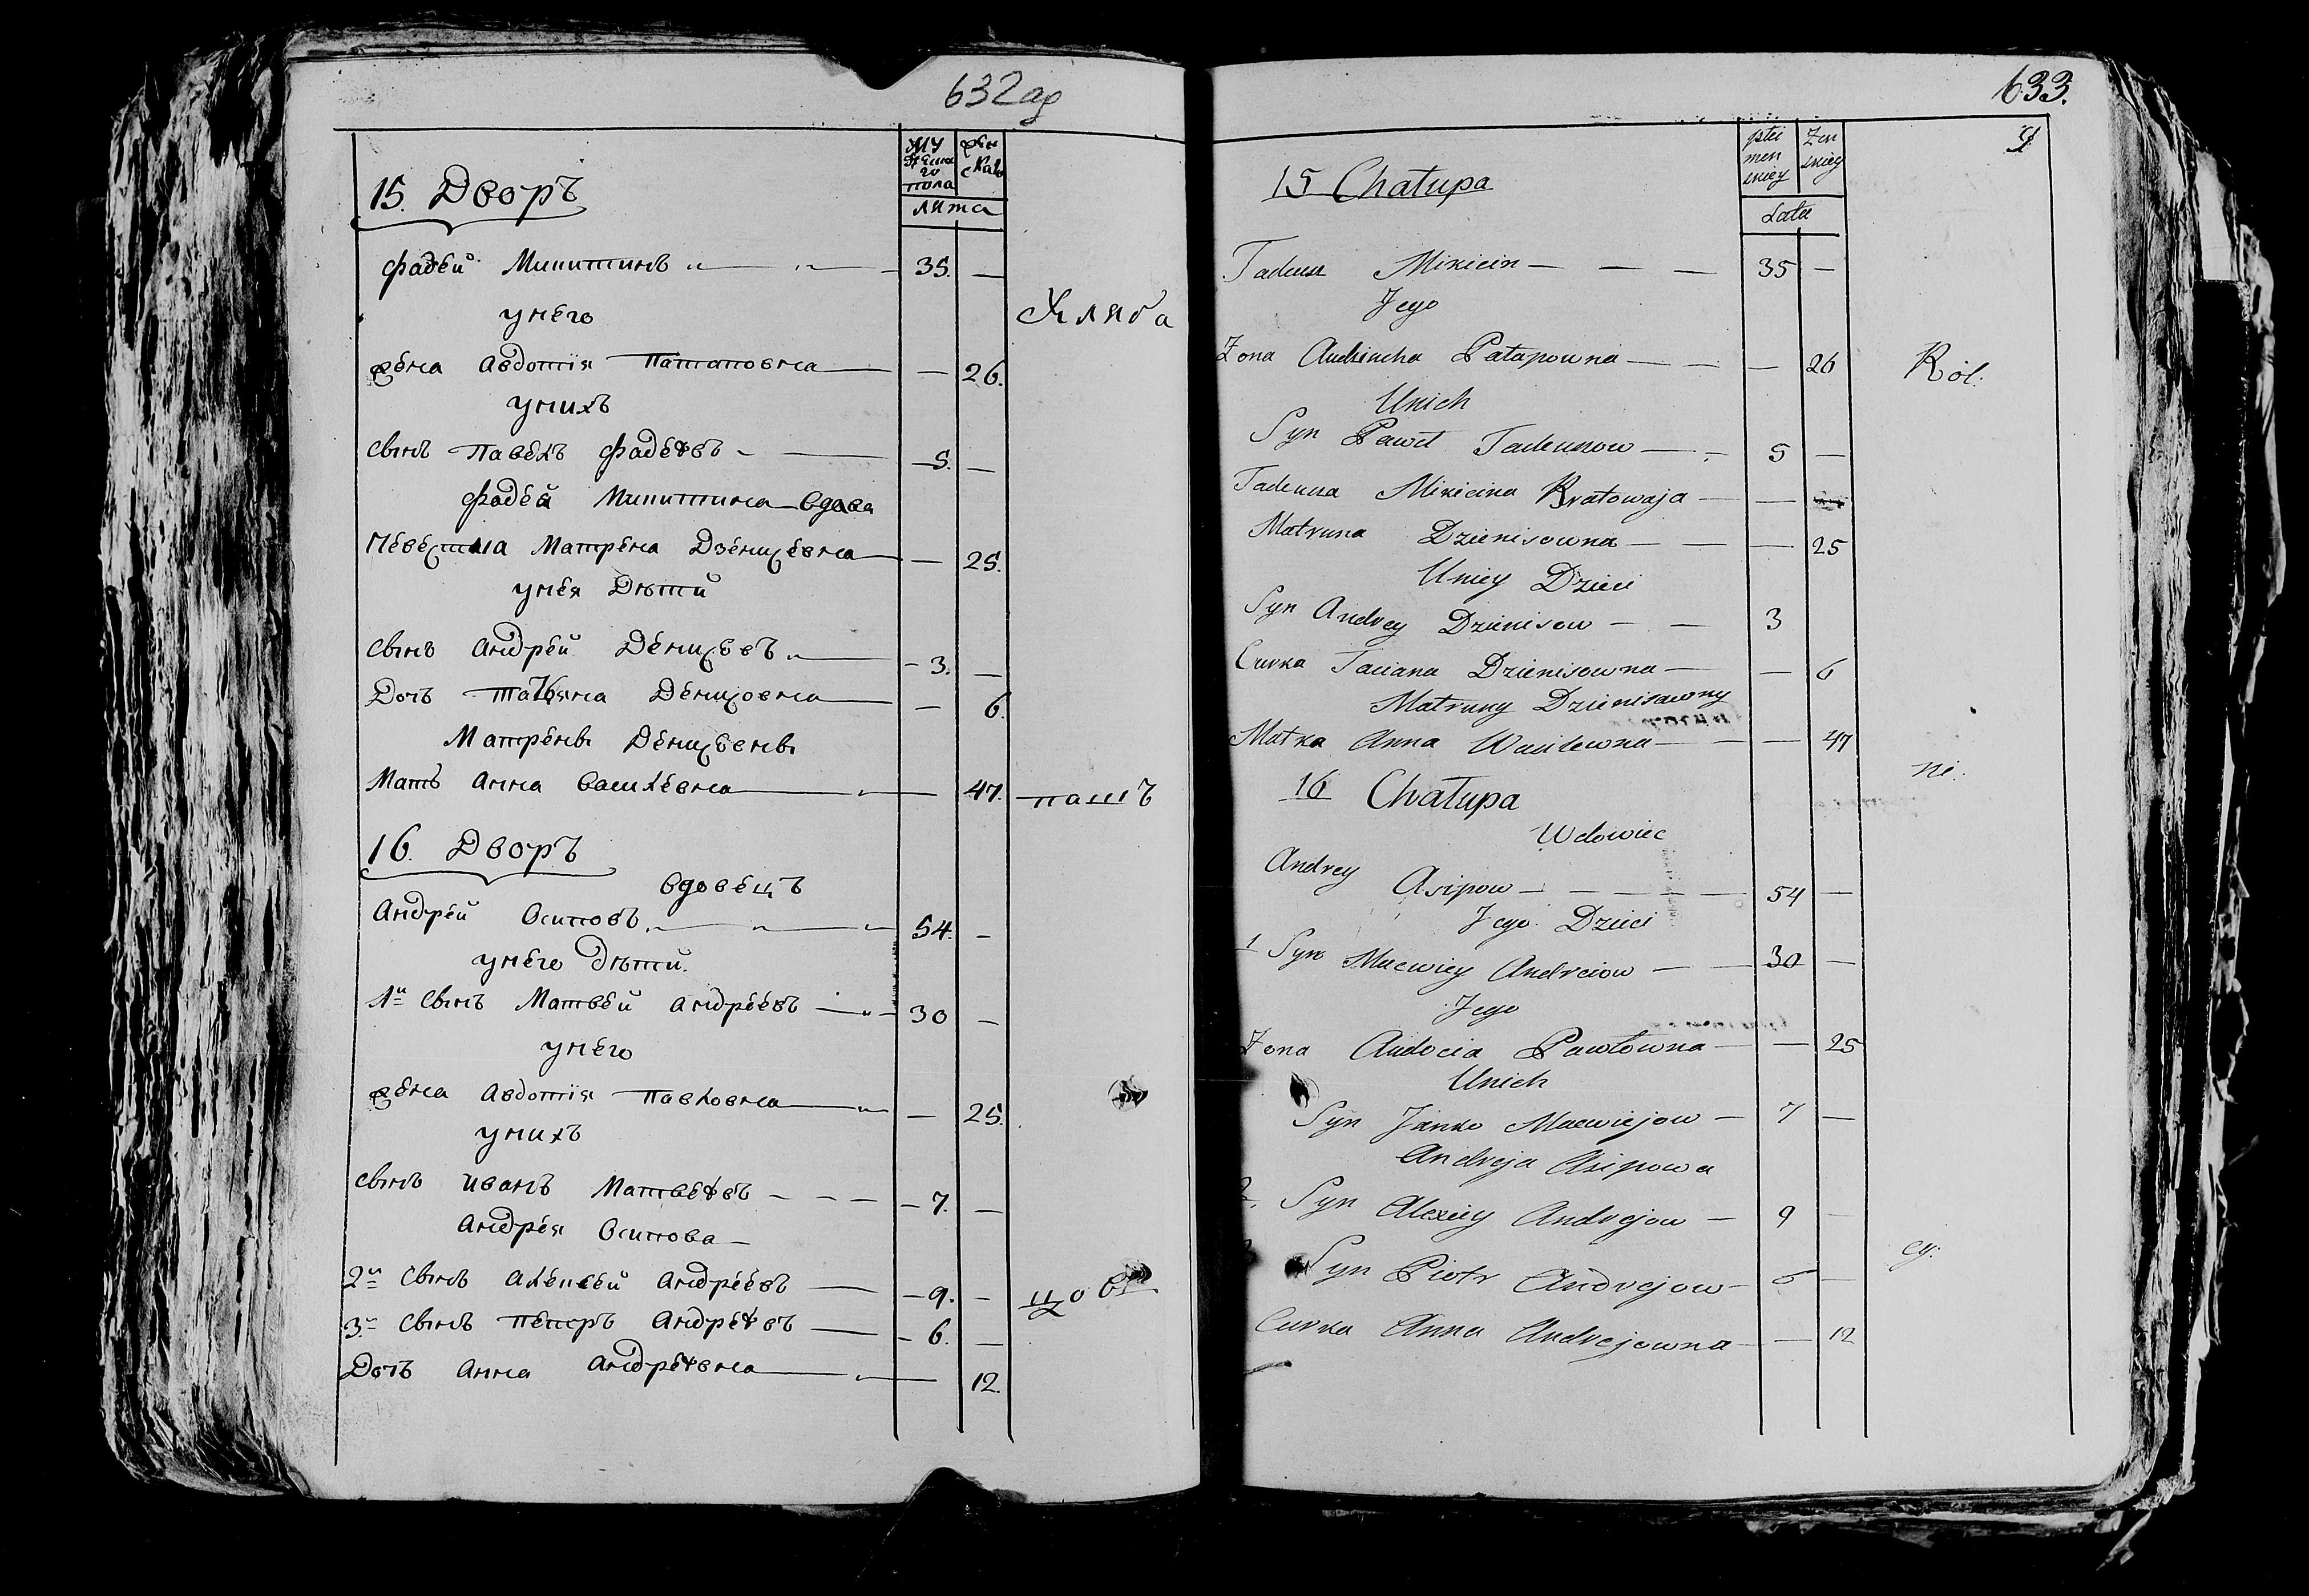 632 ад
15. Дворъ
Му
жеска
го
пола
жен
ска
лѣта
Фадей Микитинъ 35. —
у него
жена Авдотія Патаповна — 26.
у нихъ
сынъ Павелъ Фадеевъ — 5. —
Фадея Микитина вдова
невестка Матрена Дзенисевна — 25.
у нея Дѣти
сынъ Андрей Денисовъ — 3. —
Дочь Татьяна Денисовна — 6.
Матрены Денисовны
Мать Анна Василевна — 47.
16. Дворъ
вдовецъ
Андрей Осиповъ 54. —
у него дѣти.
1й сынъ Матвей Андреевъ — 30 —
у него
жена Авдотія Павловна — 25.
у нихъ
сынъ Иванъ Матвеевъ — 7. —
Андрея Осипова
2й сынъ Алексей Андреевъ — 9. —
3й сынъ Петръ Андреевъ — 6. —
Дочъ Анна Андреевна — 12.
Хляба
пашъ
633.
9
15 Chałupa
płci
men
skiey
Żen
skiey
Lata
Tadeusz Mikicin — — — 35 —
Jego
Żona Audsiucha Patapowna — — — 26
Unich
Syn Paweł Tadeuszow — 5 —
Tadeusza Mikicina Bratowaja — —
Matruna Dzienisowna — — — 25
Uniey Dzieci
Syn Andrey Dzienisow — — 3
Curka Taciana Dzienisowna — — 6
Matruny Dzienisowny
Matka Anna Wasilewna — — — 47
16 Chałupa
Wdowiec
Andrey Asipow — — — — 54 —
Jego Dzieci
1 Syn Macwiey Andreiow — — 30 —
Jego
Żona Audocia Pawłowna — — 25
Unich
Syn Janko Macwiejow — 7 —
Andreja Asipowa
2. Syn Alexiey Andrejow — 9 —
Syn Piotr Andrejow — 6 —
Curka Anna Andrejowna — — 12
Ról.
ni.
cy.